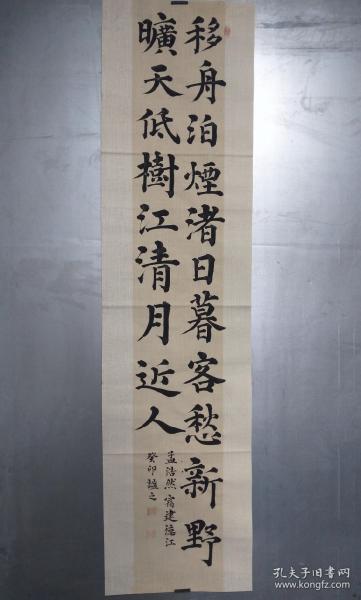 移舟泊煙渚日暮客愁新野
曠天低樹江清月近人
孟浩然宿建德江
癸卯
孔夫子旧书网
www.kongfz.com